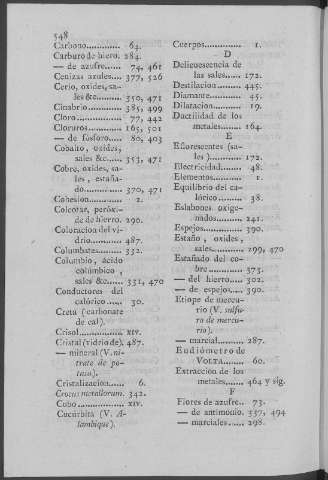 548
Carbono............. 64.
Carburo de hiero. 284.
— de azufre...... 74, 461
Cenizas azules.... 377, 526
Cerio, oxides, sa-
les &c........ 350, 471
Cinabrio............ 385, 499
Cloro................ 77, 442
Cloruros............ 165, 501
— de fosforo..... 80, 403
Cobalto, oxides,
sales &c...... 353, 471
Cobre, oxides, sa-
les, estaña-
do............. 370, 471
Cohesion............ 2.
Colcotar, peróxi-
de de hierro. 290.
Coloracion del vi-
drio........... 487.
Columbates........ 332.
Columbio, ácido
colúmbico,
sales &c....... 331, 470
Conductores del
calórico...... 30.
Creta (carbonate
de cal).
Crisol............... XIV.
Cristal (vidrio de). 487.
— mineral (V. ni-
trate de po-
tasa).
Cristalizacion...... 6.
Crocus metallorum. 342.
Cubo................. XIV.
Cucúrbita (V. A-
lambique).
Cuerpos.............. 1.
D
Delicuescencia de
las sales...... 172.
Destilacion......... 445.
Diamante........... 45.
Dilatacion.......... 19.
Ductilidad de los
metales....... 164.
E
Eflorescentes (sa-
les)............ 172.
Electricidad........ 48.
Elementos.......... 1.
Equilibrio del ca-
lórico......... 38.
Eslabones oxige-
nados......... 241.
Espejos............. 390.
Estaño, oxides,
sales.......... 299, 470
Estañado del co-
bre............ 373.
— del hierro...... 302.
— de espejos..... 390.
Etiope de mercu-
rio (V. sulfu-
ro de mercu-
rio).
— marcial......... 287.
Eudiómetro de
VOLTA........ 60.
Extraccion de los
metales....... 464 y sig.
F
Flores de azufre.. 73.
— de antimonio. 337, 494
— marciales...... 298.